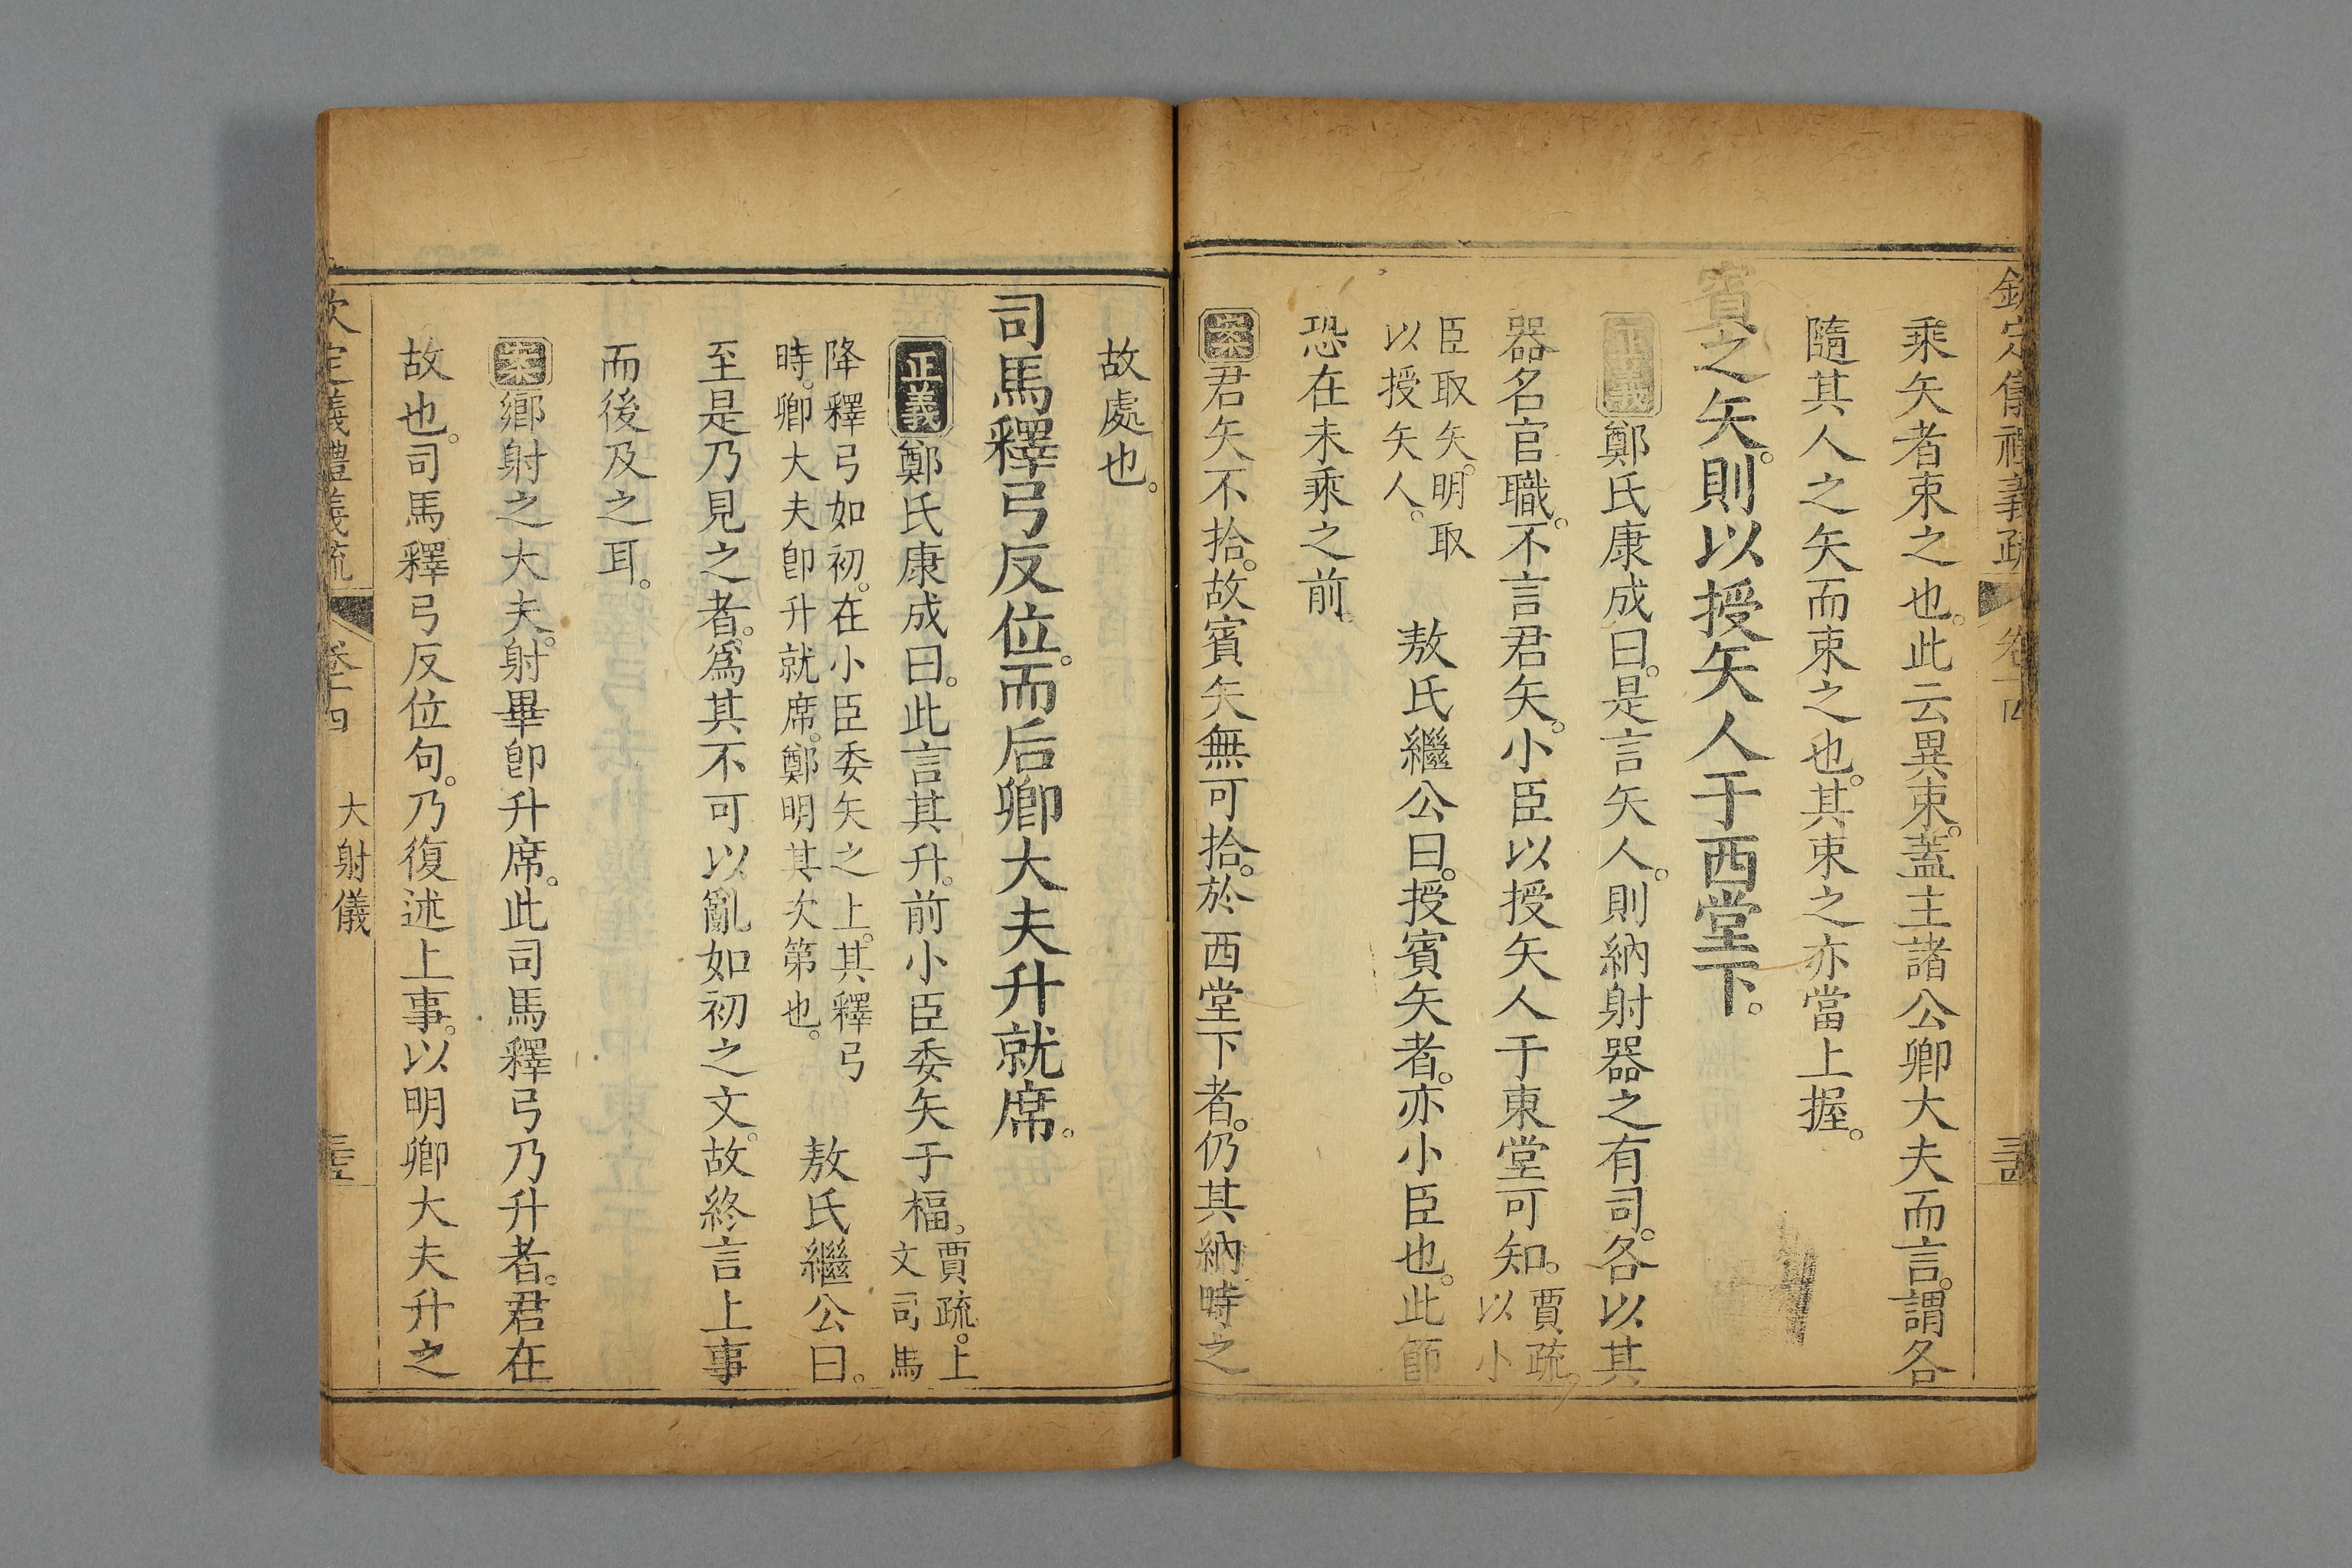 欽定儀禮義疏 卷十四
乘矢者束之也。此云異束。蓋主諸公卿大夫而言。謂各
隨其人之矢而束之也。其束之亦當上握。
賓之矢。則以授矢人于西堂下。
正義鄭氏康成曰。是言矢人。則納射器之有司。各以其
器名官職。不言君矢。小臣以授矢人于東堂可知。賈疏。以小
臣取矢。明取以授矢人。 敖氏繼公曰。授賓矢者。亦小臣也。此節
恐在未乘之前。
案君矢不拾。故賓矢無可拾。於西堂下者。仍其納時之
故處也。
司馬釋弓反位。而后卿大夫升就席。
正義鄭氏康成曰。此言其升。前小臣委矢于楅。賈疏。上文司馬
降釋弓如初。在小臣委矢之上。其釋弓時。卿大夫卽升就席。鄭明其次第也。 敖氏繼公曰。
至是乃見之者。為其不可以亂如初之文。故終言上事
而後及之耳。
案鄉射之大夫。射畢卽升席。此司馬釋弓乃升者。君在
故也。司馬釋弓反位句。乃復述上事。以明卿大夫升之
欽定儀禮義疏 卷十四 大射儀